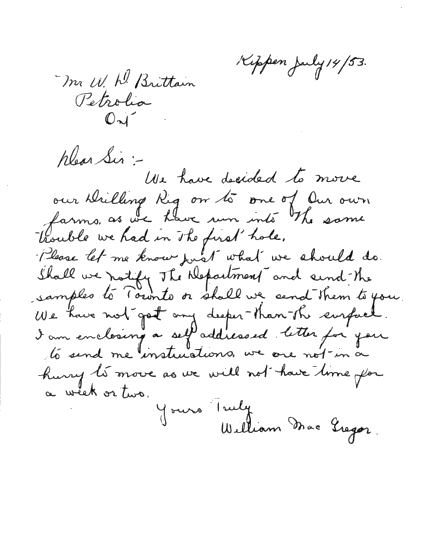 Kippen July 14/53.
Mr W. D Brittain
Petrolia
Ont
Dear Sir:-
We have decided to move
our Drilling Rig on to one of Our own
farms, as we have run into The same
trouble we had in The first hole.
Please let me know just what we should do.
Shall we notify The Department and send the
samples to Toronto or shall we send Them to you.
We have not got any deeper than the surface.
I am enclosing a self addressed letter for you
to send me instructions, we are not in a
hurry to move as we will not have time for
a week or two.
Yours Truly
William Mac Gregor.